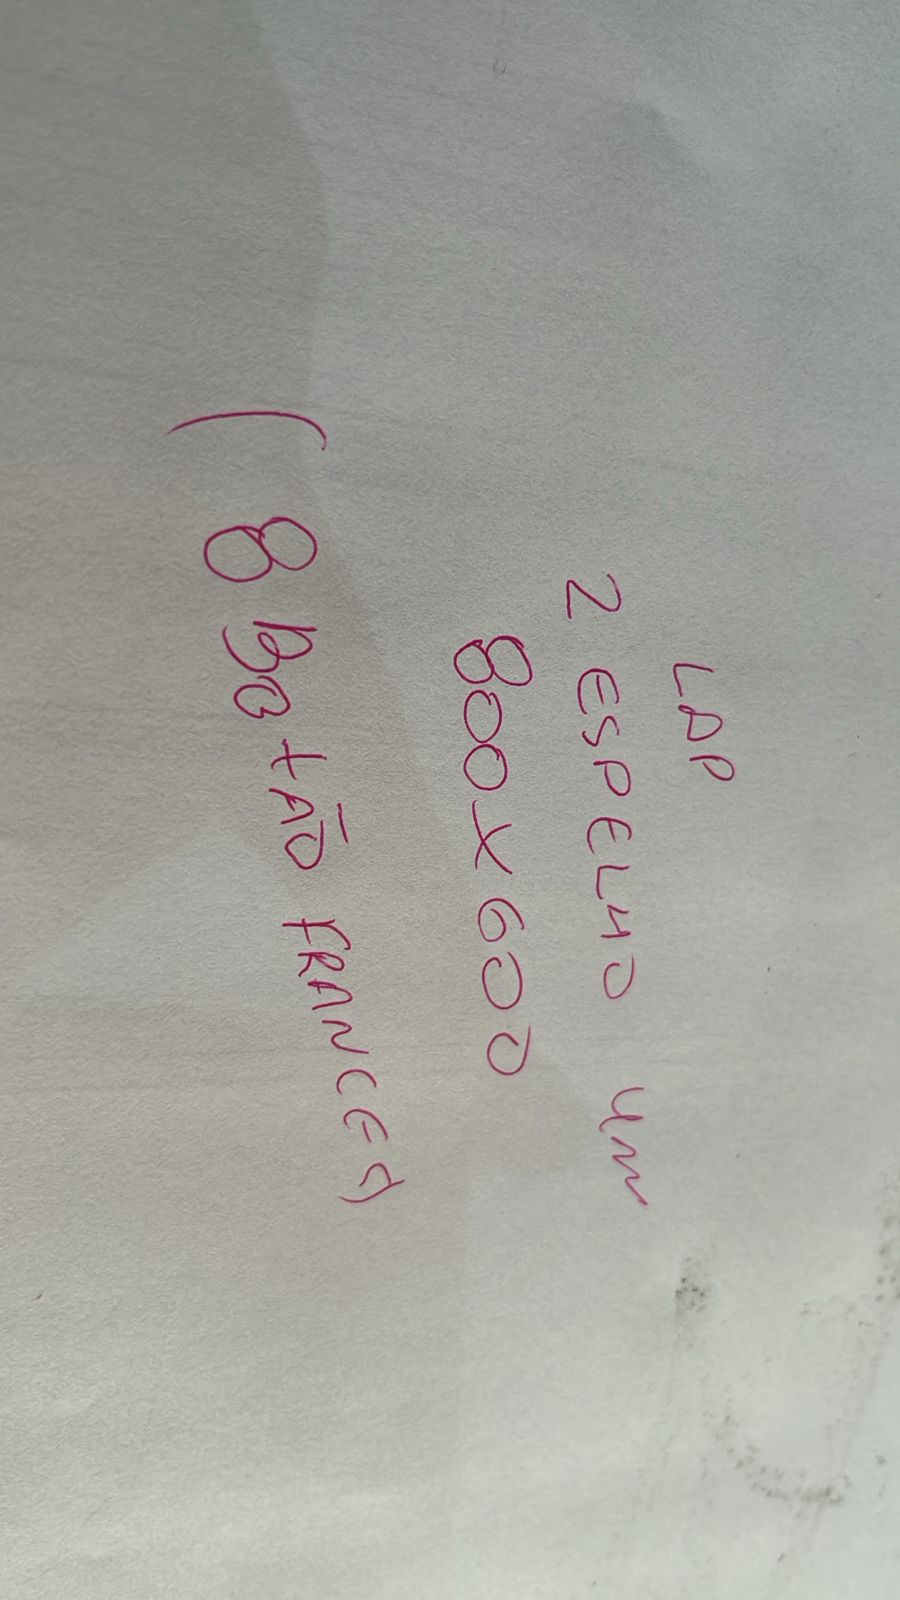 LAP
2 ESPELHO 4M
800X600
( 8 BOTÃO FRANCES